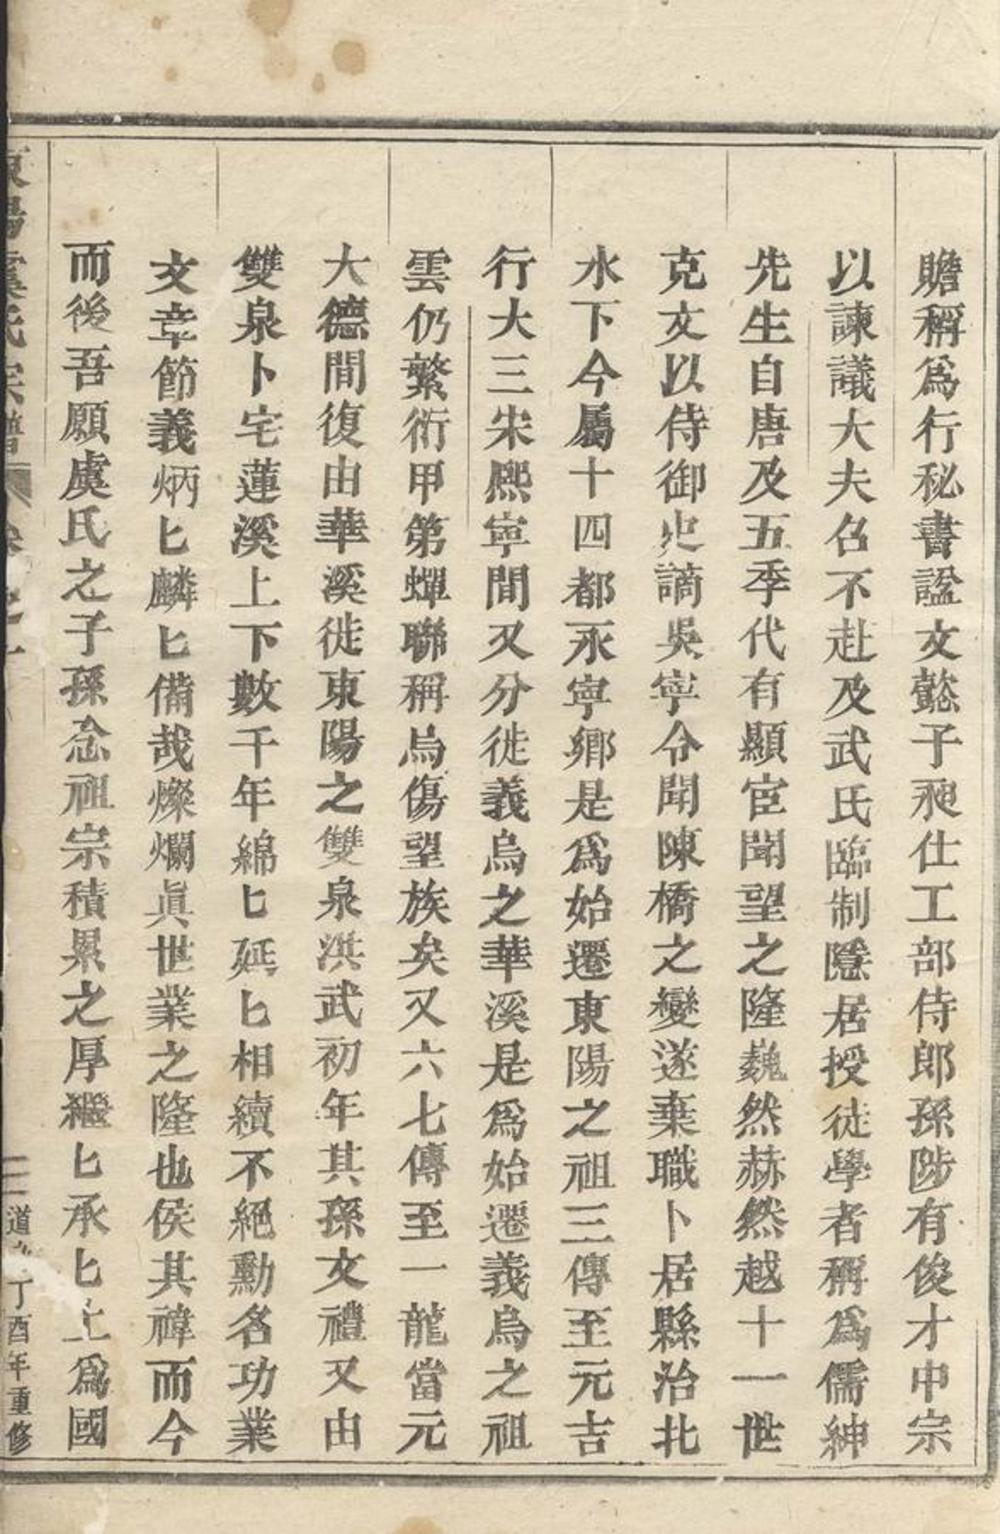 贍稱爲行秘書諡文懿子昶仕工部侍郎孫陟有俊才中宗
以諫議大夫召不赴及武氏臨制隱居授徒學者稱爲儒紳
先生自唐及五季代有顯宦聞望之隆巍然赫然越十一世
克文以侍御史謫吳寧令聞陳橋之變遂棄職卜居縣治北
水下今屬十四都永寧鄉是爲始遷東陽之祖三傳至元吉
行大三宋熙寧間又分徙義烏之華溪是爲始遷義烏之祖
雲仍繁衍甲第蟬聯稱烏傷望族矣又六七傳至一龍當元
大德間復由華溪徙東陽之雙泉洪武初年其孫文禮又由
雙泉卜宅蓮溪上下數千年綿匕延匕相續不絕勳名功業
文章節義炳匕麟匕備哉燦爛眞世業之隆也侯其禕而今
而後吾願虞氏之子孫念祖宗積累之厚繼匕承匕上爲國
東陽虞氏宗譜
道 丁酉年重修